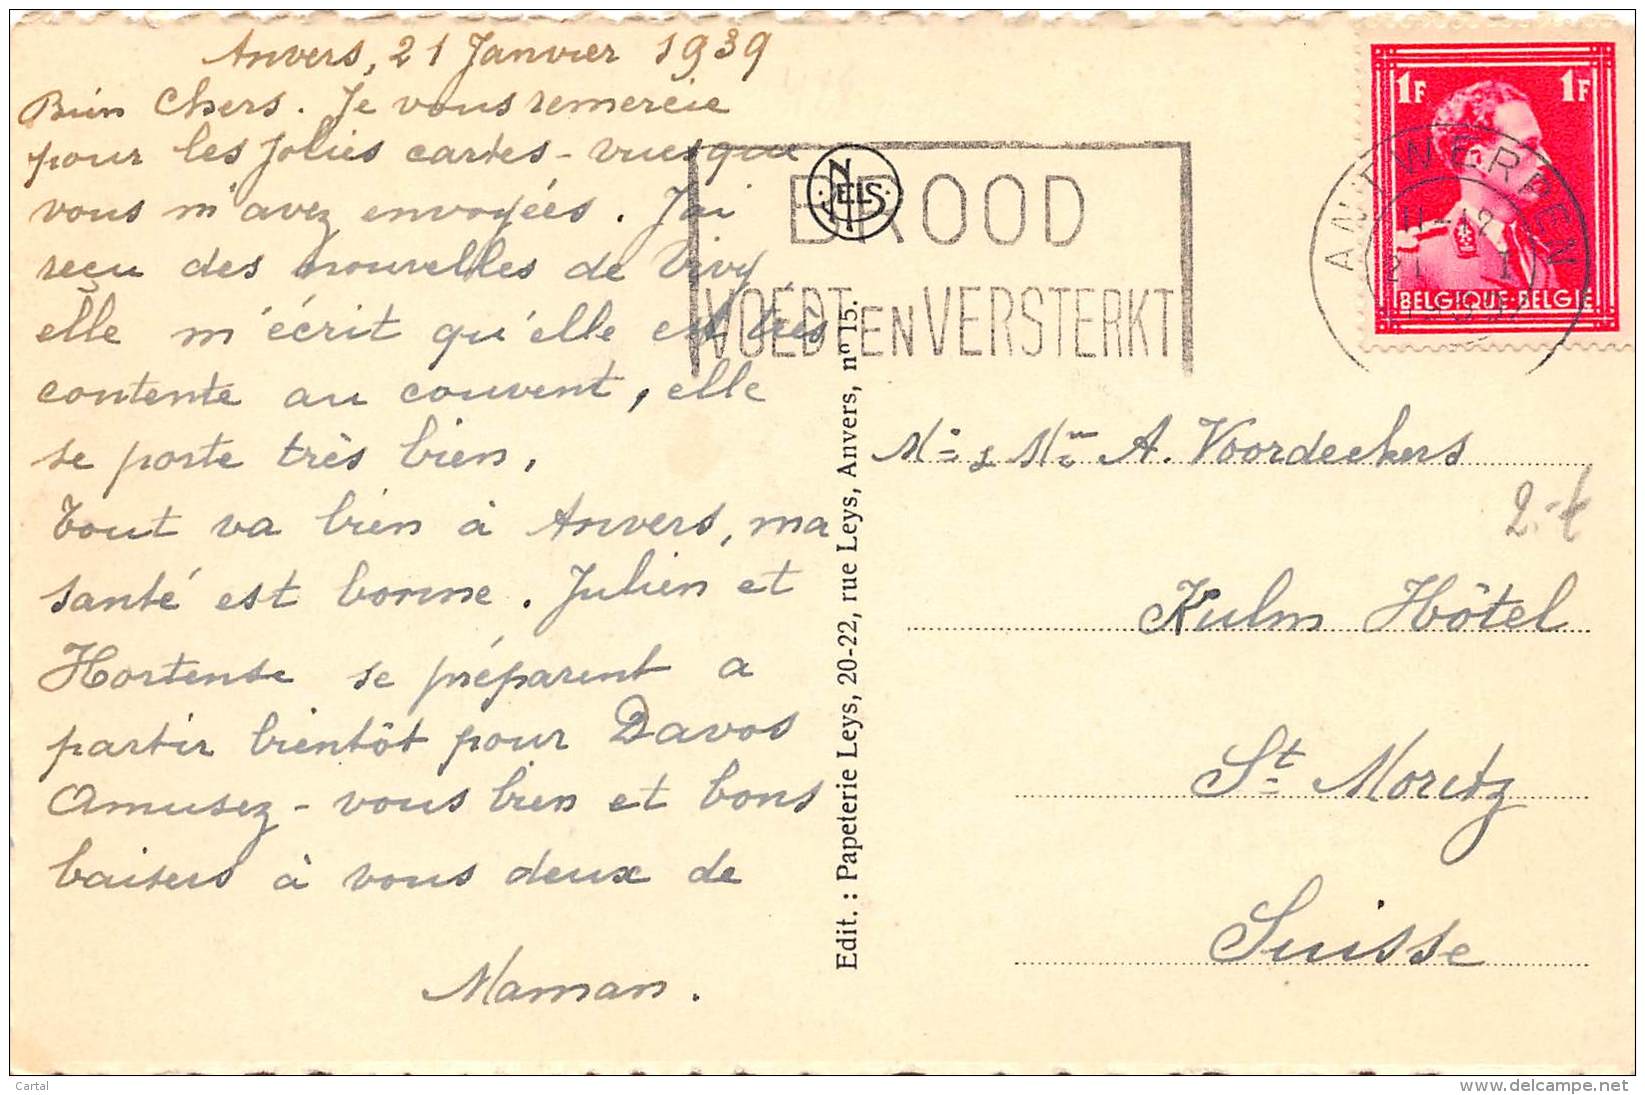 Anvers, 21 Janvier 1939
Bien Chers. Je vous remercie
pour les jolies cartes-vues que
vous m'avez envoyées. J'ai
reçu des nouvelles de Vivy
elle m'écrit qu'elle est très
contente au couvent, elle
se porte très bien,
Tout va bien à Anvers, ma
santé est bonne. Julien et
Hortense se préparent a
partir bientôt pour Davos
Amusez-vous bien et bons
baisers à vous deux de
Maman.
NELS
Edit. : Papeterie Leys, 20-22, rue Leys, Anvers, nº 15.
BROOD
VOEDT EN VERSTERKT
1F 1F
BELGIQUE-BELGIE
ANTWERPEN
11-12
21 I
Mr & Mme A. Voordeckers
2.-
Kulm Hôtel
St Moritz
Suisse
Cartal
www.delcampe.net